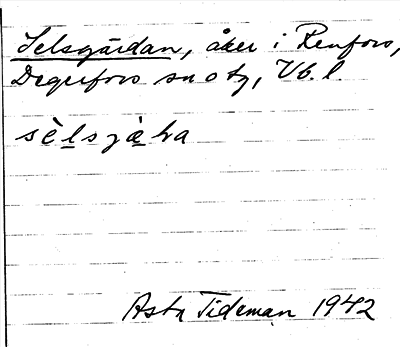 Selsgärdan, åker i Renfors,
Degerfors sn o tg, Vb. l.
sèlsgàha
Asta Tideman 1942